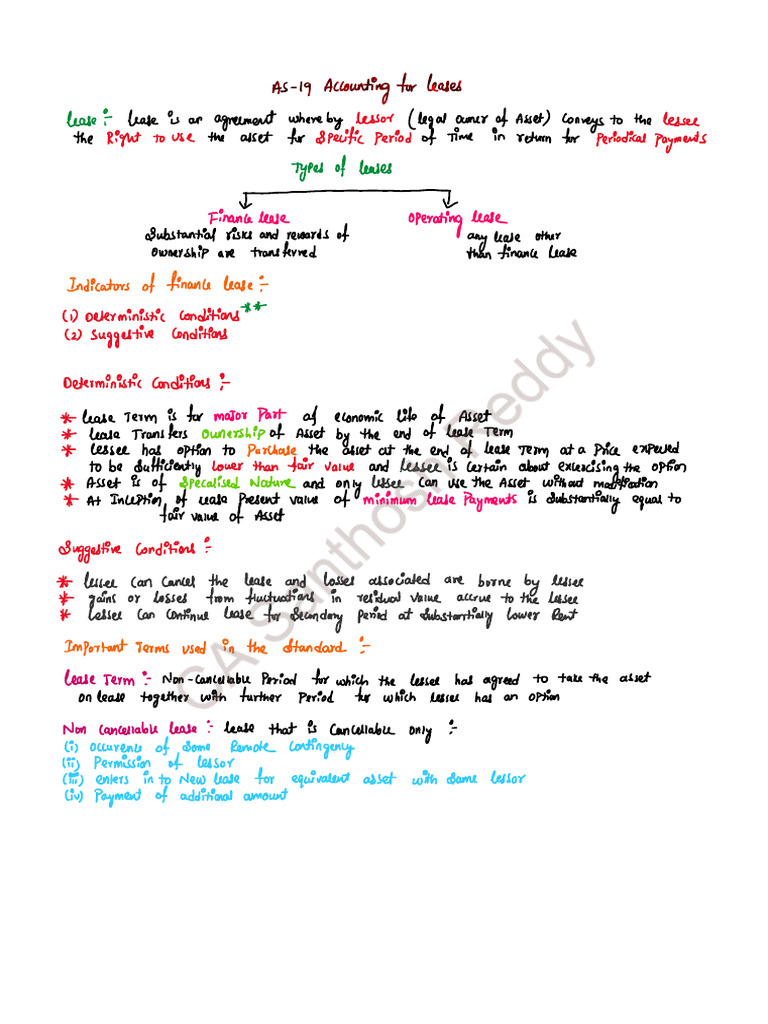 AS-19 Accounting for leases
lease :- lease is an agreement where by lessor (legal owner of Asset) conveys to the lessee
the Right to use the asset for Specific Period of Time in return for Periodical Payments
Types of leases
Finance lease
Substantial risks and rewards of
ownership are transferred
operating lease
any lease other
than finance lease
Indicators of finance lease :-
(1) Deterministic Conditions **
(2) Suggestive Conditions
Deterministic Conditions :-
* lease Term is for major Part of economic life of Asset
* lease Transfers ownership of Asset by the end of lease Term
* lessee has option to Purchase the asset at the end of lease Term at a Price expected
to be sufficiently lower than fair value and lessee is certain about exercising the option
* Asset is of Specalised Nature and only lesee can use the Asset without modification
* At Inception of lease Present value of minimum lease Payments is substantially equal to
fair value of Asset
Suggestive Conditions :-
* lessee can cancel the lease and losses associated are borne by lessee
* gains or losses from fluctuations in residual value accrue to the lessee
* lessee can continue lease for Secondary Period at substantially Lower Rent
Important Terms used in the Standard :-
lease Term :- Non-cancellable Period for which the lessee has agreed to take the asset
on lease together with further Period for which lessee has an option
Non cancellable lease :- lease that is cancellable only :-
(i) occurence of some Remote Contingency
(ii) Permission of lessor
(iii) enters in to New lease for equivalent asset with same lessor
(iv) Payment of additional amount
CA Santhosh Reddy